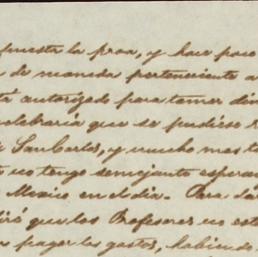 puesta la proa, y hace poco
de manida perteneciente a
autorizado para tomar din
celebraria que se pudiese
San Carlos, y mucho mas
no tengo semejante esperan
Mexico en el dia. Para
que los Profesores no est
pagar los gastos, habiendo